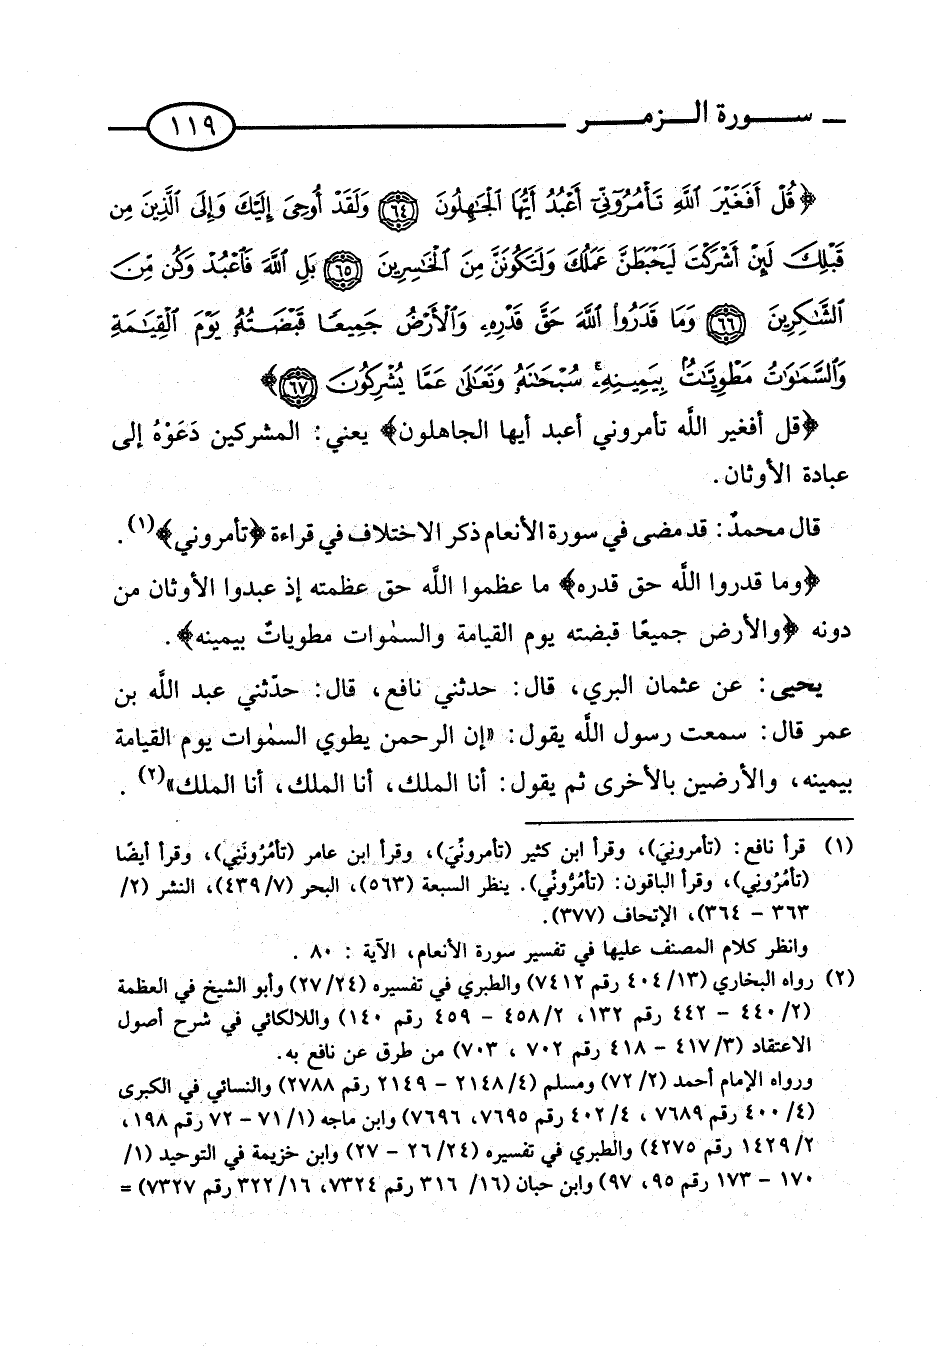 سـورة الـزمـر ١١٩
﴿قُلْ أَفَغَيْرَ ٱللَّهِ تَأْمُرُوٓنِّىٓ أَعْبُدُ أَيُّهَا ٱلْجَٰهِلُونَ ﴿٦٤﴾ وَلَقَدْ أُوحِىَ إِلَيْكَ وَإِلَى ٱلَّذِينَ مِن
قَبْلِكَ لَئِنْ أَشْرَكْتَ لَيَحْبَطَنَّ عَمَلُكَ وَلَتَكُونَنَّ مِنَ ٱلْخَٰسِرِينَ ﴿٦٥﴾ بَلِ ٱللَّهَ فَٱعْبُدْ وَكُن مِّنَ
ٱلشَّٰكِرِينَ ﴿٦٦﴾ وَمَا قَدَرُوا۟ ٱللَّهَ حَقَّ قَدْرِهِۦ وَٱلْأَرْضُ جَمِيعًا قَبْضَتُهُۥ يَوْمَ ٱلْقِيَٰمَةِ
وَٱلسَّمَٰوَٰتُ مَطْوِيَّٰتٌۢ بِيَمِينِهِۦ سُبْحَٰنَهُۥ وَتَعَٰلَىٰ عَمَّا يُشْرِكُونَ ﴿٦٧﴾﴾
﴿قل أفغير اللَّه تأمروني أعبد أيها الجاهلون﴾ يعني: المشركين دَعَوْهُ إلى
عبادة الأوثان.
قال محمدٌ: قد مضى في سورة الأنعام ذكر الاختلاف في قراءة ﴿تأمروني﴾(١).
﴿وما قدروا اللَّه حق قدره﴾ ما عظموا اللَّه حق عظمته إذ عبدوا الأوثان من
دونه ﴿والأرض جميعًا قبضته يوم القيامة والسمٰوات مطوياتٌ بيمينه﴾.
يحيى: عن عثمان البري، قال: حدثني نافع، قال: حدّثني عبد اللَّه بن
عمر قال: سمعت رسول اللَّه يقول: «إن الرحمن يطوي السمٰوات يوم القيامة
بيمينه، والأرضين بالأخرى ثم يقول: أنا الملك، أنا الملك، أنا الملك»(٢).
(١) قرأ نافع: (تأمرونِيَ)، وقرأ ابن كثير (تأمرونِّيَ)، وقرأ ابن عامر (تأمُرُونَنِي)، وقرأ أيضًا
(تأمُرُوني)، وقرأ الباقون: (تأمُرُونِّي). ينظر السبعة (٥٦٣)، البحر (٧/ ٤٣٩)، النشر (٢/
٣٦٣ – ٣٦٤)، الإتحاف (٣٧٧).
وانظر كلام المصنف عليها في تفسير سورة الأنعام، الآية : ٨٠ .
(٢) رواه البخاري (١٣/ ٤٠٤ رقم ٧٤١٢) والطبري في تفسيره (٢٤/ ٢٧) وأبو الشيخ في العظمة
(٢/ ٤٤٠ – ٤٤٢ رقم ١٣٢، ٢/ ٤٥٨ – ٤٥٩ رقم ١٤٠) واللالكائي في شرح أصول
الاعتقاد (٣/ ٤١٧ – ٤١٨ رقم ٧٠٢ ، ٧٠٣) من طرق عن نافع به.
ورواه الإمام أحمد (٢/ ٧٢) ومسلم (٤/ ٢١٤٨ – ٢١٤٩ رقم ٢٧٨٨) والنسائي في الكبرى
(٤/ ٤٠٠ رقم ٧٦٨٩ ، ٤/ ٤٠٢ رقم ٧٦٩٥، ٧٦٩٦) وابن ماجه (١/ ٧١ – ٧٢ رقم ١٩٨ ،
٢/ ١٤٢٩ رقم ٤٢٧٥) والطبري في تفسيره (٢٤/ ٢٦ – ٢٧) وابن خزيمة في التوحيد (١/
١٧٠ – ١٧٣ رقم ٩٥، ٩٧) وابن حبان (١٦/ ٣١٦ رقم ٧٣٢٤، ١٦/ ٣٢٢ رقم ٧٣٢٧) =